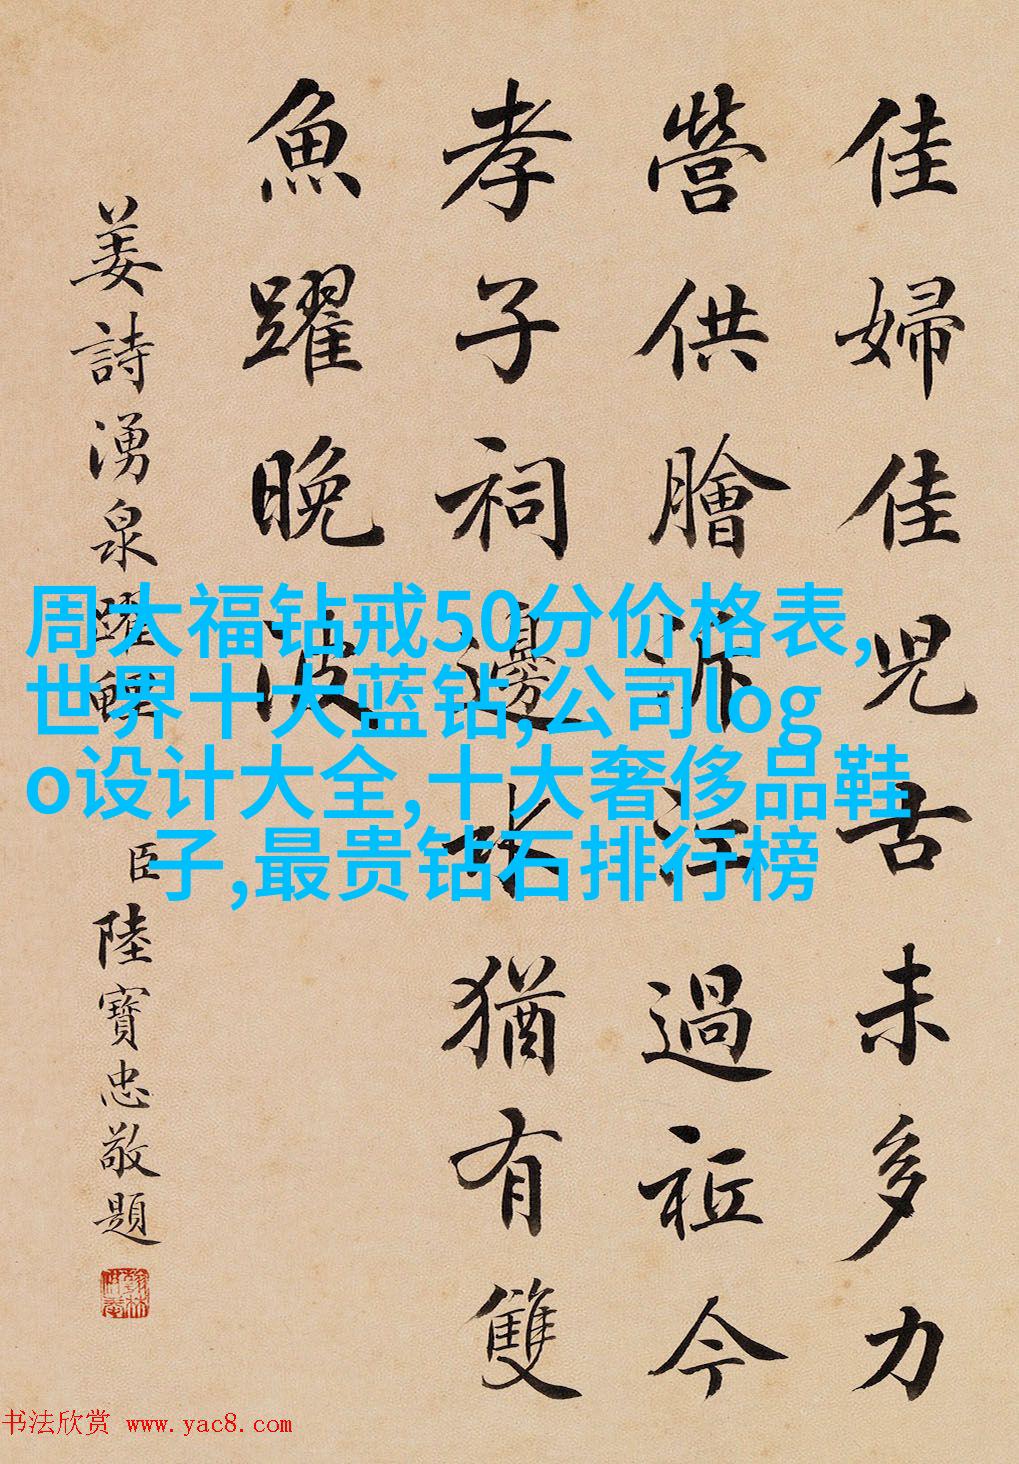 佳婦佳兒古未多力
營供膾泝江過祗今
孝子祠邊水猶有雙
魚躍晚波
姜詩湧泉躍鯉
臣陸寶忠敬題
周大福钻戒50分价格表,
世界十大蓝钻,公司log
o设计大全,十大奢侈品鞋
子,最贵钻石排行榜
书法欣赏 www.yac8.com